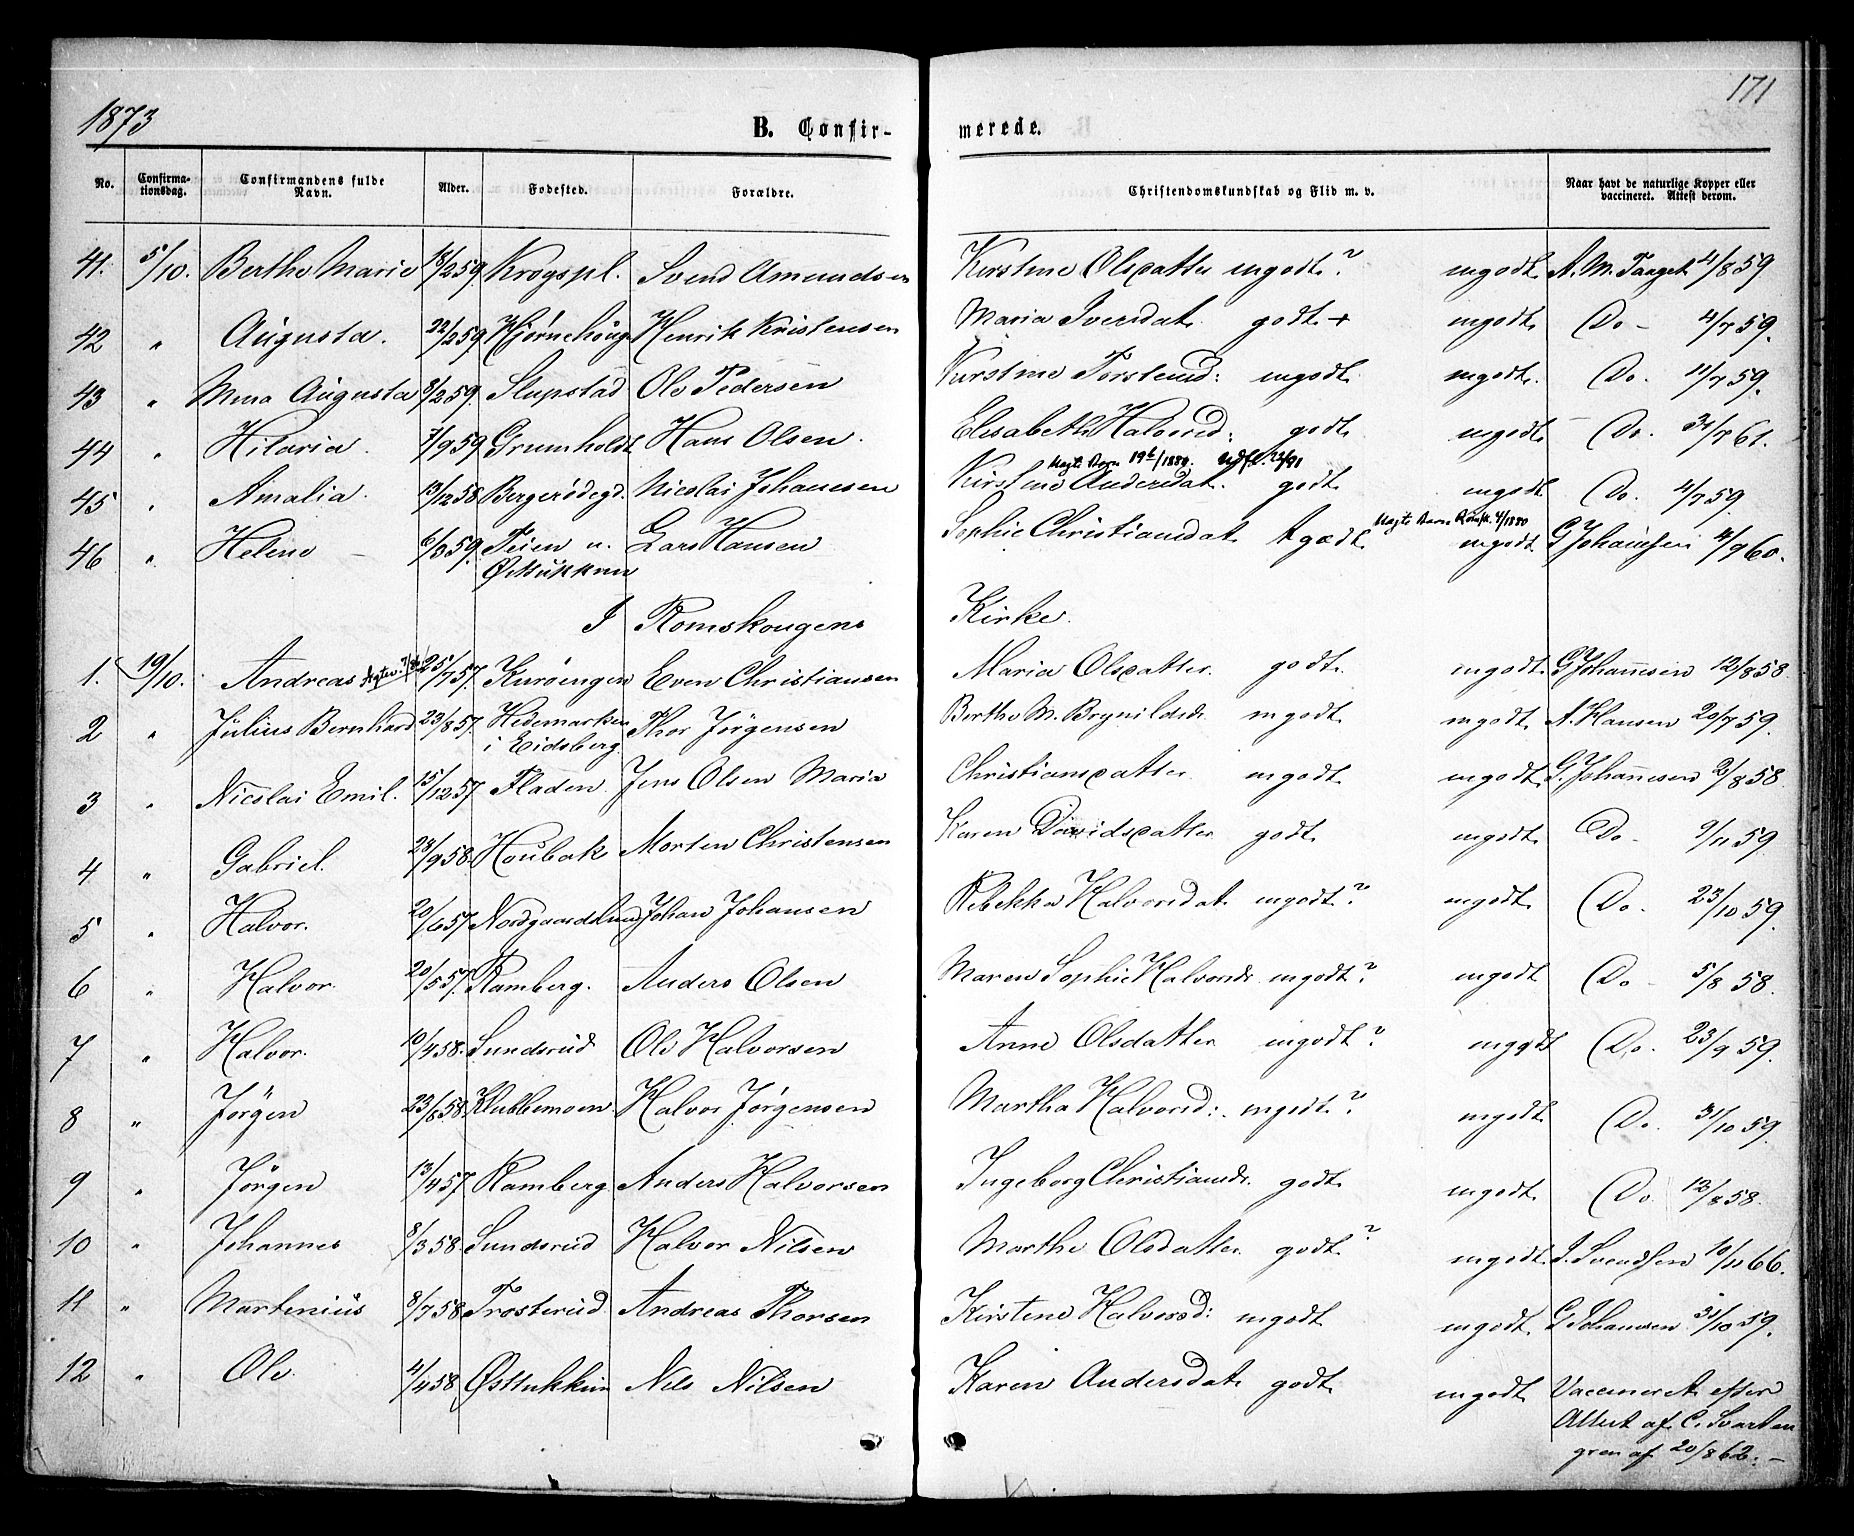 1873
171
B. Confir-
merede.
No.
Confirma-
tionsdag.
Confirmandens fulde
Navn.
Alder.
Fødested.
Forældre.
Christendomskundskab og Flid m. v.
Naar havt de naturlige Kopper eller
vaccineret. Attest derom.
41. 5/10. Berthe Marie 18/2 59. Krogspl. Svend Amundsen Kirstine Olsdatter mgodt? mgodt A. M. Taaget 4/8 59
42 " Augusta. 22/2 59. Henrik Kristensen Maria Iversdat. godt + mgodt Do - 4/7 59.
43 " Mina Augusta 8/2 59. Slupstad Ole Pedersen Kirstine Torstensd: mgodt mgodt. Do. 11/7 59.
44 " Hilaria. 7/9 59 Grumholdt Hans Olsen. Elisabeth Halvorsd: godt mgodt Do. 7 61.
45 " Amalia. 13/12 58 Bergerødegd. Nicolai Johansen Kirstine Andersdat. godt mgodt Do. 4/7 59.
46 " Helene - 59. Teien u. Lars Hansen Sophie Christiansdat. godt mgodt G. Johansen 11/9 60.
I Romskougens Kirke.
1. 19/10. Andreas 25/7 57. Kurøengen Even Christiansen Maria Olsdatter. godt mgodt G. Johannesen 12/8 58
2 " Julius Bernhard 23/8 57. Hedemarken Thor Jørgensen Berthe M. Brynildsd. mgodt mgodt A. Hansen 20/7 59.
i Eidsberg.
3 " Nicolai Emil. 15/12 57 Fladen. Jens Olsen Maria Christiansdatter mgodt mgodt G. Johannesen 2/8 58.
4 " Gabriel. 28/9 58. Houbak Morten Christensen Karen Davidsdatter godt mgodt Do - 9/11 59.
5 " Halvor. 20/6 57 Johan Johansen Rebekka Halvorsdat. mgodt? mgodt Do. 23/10 59.
6 " Halvor. 20/5 57. Ramberg. Anders Olsen Maren Sophie Halvorsd. mgodt? mgodt Do - 5/8 58.
7 " Halvor. 10/4 58. Sundsrud Ole Halvorsen Anne Olsdatter mgodt? mgodt Do. 23/9 59.
8 " Jørgen 23/8 58. Klubbemoen. Halvor Jørgensen Martha Halvorsd: mgodt? mgodt Do. 31/10 59.
9 " Jørgen 13/4 57 Ramberg Anders Halvorsen Ingeborg Christiansd. godt mgodt Do. 12/8 58.
10 " Johannes 8/3 58. Sundsrud Halvor Nilsen Marthe Olsdatter godt? mgodt J. Svendsen 10/11 66.
11 " Martenius 8/7 58. Trosterud. Andreas Thorsen Kirstine Halvorsd: mgodt mgodt G. Johansen 31/10 59.
12 " Ole. 4/4 58 Østtukkun Nils Nilsen Karen Andersdat. godt mgodt Vaccineret efter
Attest af C. Svarten
gren af 20/8 62. -